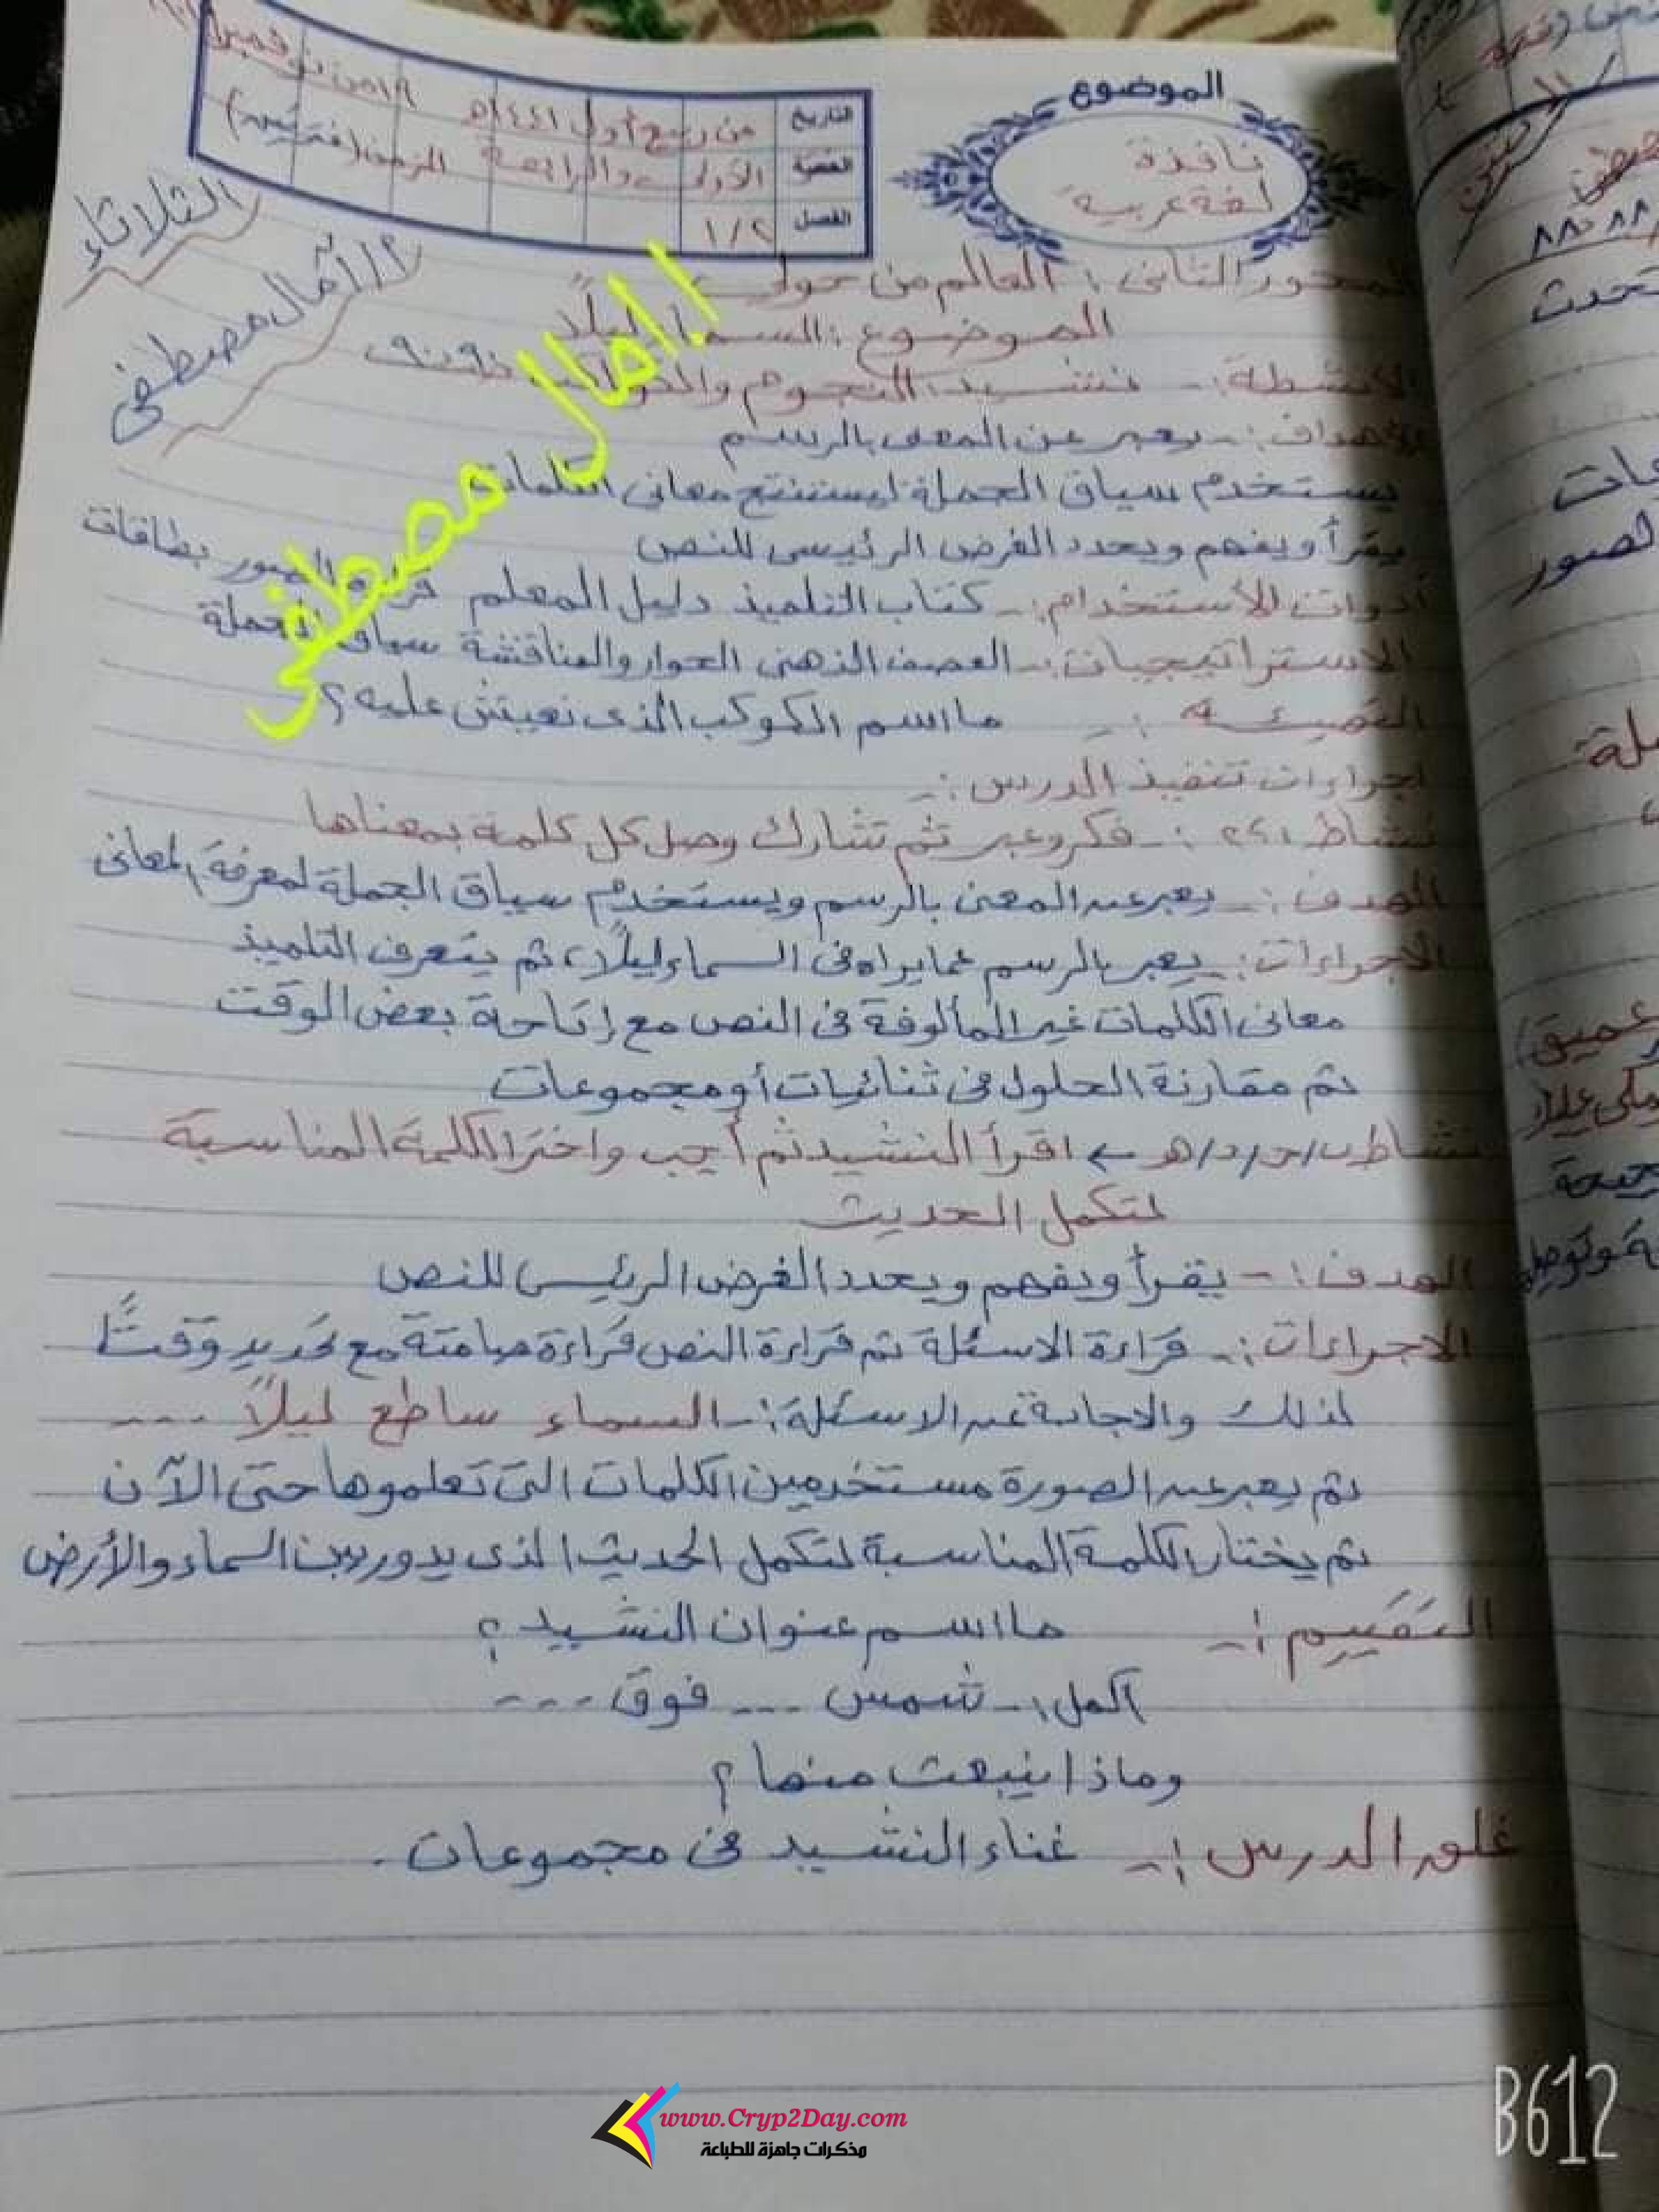 الموضوع
نافذة
لغة عربية
التاريخ من ربيع أول ١٤٤١هـ ١٩ من نوفمبر
الحصة الأولى والرابعة الزمن (فترتين)
الفصل ١/٢
الثلاثاء
أ/ آمال مصطفى
المحور الثانى : العالم من حولى
الموضوع : السماء ليلاً
الأنشطة :- نشيد النجوم والكواكب
الأهداف :- يعبر عن المعنى بالرسم
يستخدم سياق الجملة ليستنتج معانى الكلمات
يقرأ ويفهم ويحدد الغرض الرئيسى للنص
أدوات الأستخدام :- كتاب التلميذ دليل المعلم قراءة الصور بطاقات
الاستراتيجيات :- العصف الذهنى الحوار والمناقشة سياق الجملة
التهيئة :- ما اسم الكوكب الذى نعيش عليه ؟
اجراءات تنفيذ الدرس :-
نشاط ٢،١ :- فكر وعبر ثم تشارك وصل كل كلمة بمعناها
الهدف :- يعبر عن المعنى بالرسم ويستخدم سياق الجملة لمعرفة المعانى
الاجراءات :- يعبر بالرسم عما يراه فى السماء ليلاً، ثم يتعرف التلميذ
معانى الكلمات غير المألوفة فى النص مع إتاحة بعض الوقت
ثم مقارنة الحلول فى ثنائيات أو مجموعات
نشاط ب/ج/د/هـ ← اقرأ النشيد ثم أجب واختر الكلمة المناسبة
لتكمل الحديث
الهدف :- يقرأ ويفهم ويحدد الغرض الرئيسى للنص
الاجراءات :- قراءة الاسئلة ثم قراءة النص قراءة صامتة مع تحديد وقتًا
لذلك والاجابة عن الاسئلة :- السماء ساطع ليلاً ...
ثم يعبر عن الصورة مستخدمين الكلمات التى تعلموها حتى الآن
ثم يختار الكلمة المناسبة لتكمل الحديث الذى يدور بين السماء والأرض
التقييم :- ما اسم عنوان النشيد ؟
اكمل :- شمس ... فوق ...
وماذا ينبعث منها ؟
غلق الدرس :- غناء النشيد فى مجموعات .
أ. امال مصطفى
www.Cryp2Day.com
مذكرات جاهزة للطباعة
B612